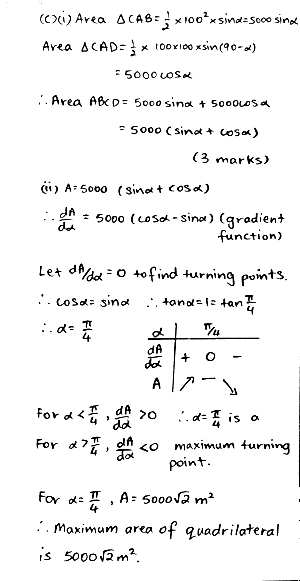 (c)(i) Area ΔCAB = 1/2 × 100² × sinα = 5000 sinα
Area ΔCAD = 1/2 × 100×100 × sin(90-α)
= 5000cosα
∴ Area ABCD = 5000 sinα + 5000cosα
= 5000 (sinα + cosα)
(3 marks)
(ii) A = 5000 (sinα + cosα)
∴ dA/dα = 5000 (cosα - sinα) (gradient
function)
Let dA/dα = 0 to find turning points.
∴ cosα = sinα ∴ tanα = 1 = tan π/4
∴ α = π/4
α | π/4
dA/dα | + 0 -
A | ↗ — ↘
For α < π/4, dA/dα > 0 ∴ α = π/4 is a
For α > π/4, dA/dα < 0 maximum turning
point.
For α = π/4, A = 5000√2 m²
∴ Maximum area of quadrilateral
is 5000√2 m².